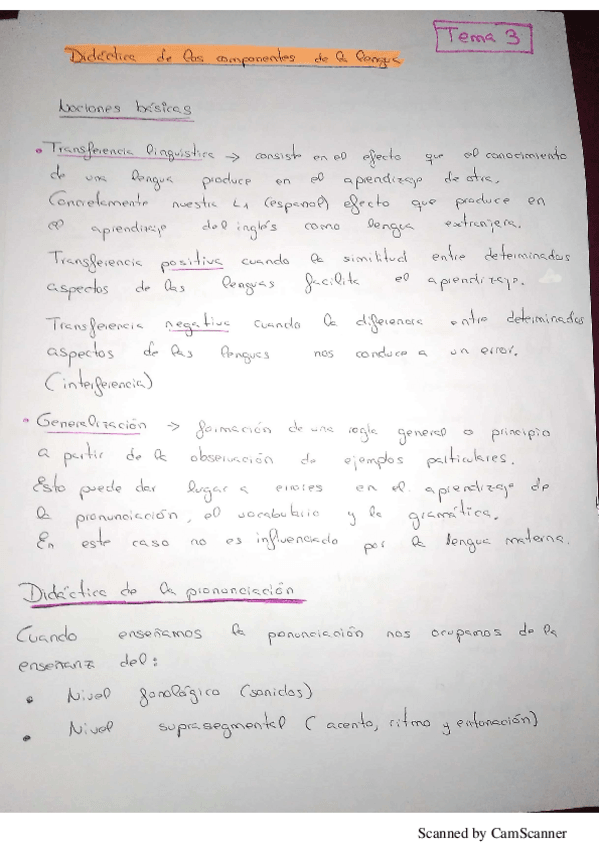 Tema 3
Didáctica de los componentes de la lengua
Nociones básicas
• Transferencia linguistica → consiste en el efecto que el conocimiento
de una lengua produce en el aprendizaje de otra.
Concretamente nuestra L1 (español) efecto que produce en
el aprendizaje del inglés como lengua extranjera.
Transferencia positiva cuando la similitud entre determinados
aspectos de las lenguas facilita el aprendizaje.
Transferencia negativa cuando la diferencia entre determinados
aspectos de las lenguas nos conduce a un error.
(interferencia)
• Generalización → formación de una regla general o principio
a partir de la observación de ejemplos particulares.
Esto puede dar lugar a errores en el aprendizaje de
la pronunciación, el vocabulario y la gramática.
En este caso no es influenciado por la lengua materna.
Didáctica de la pronunciación
Cuando enseñamos la ponunciación nos ocupamos de la
enseñanz del:
• Nivel fonológico (sonidos)
• Nivel suprasegmental (acento, ritmo y entonación)
Scanned by CamScanner